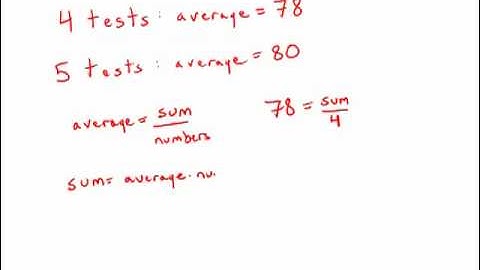 4 tests: average = 78
5 tests: average = 80
average = sum/numbers
78 = sum/4
sum= average · nu